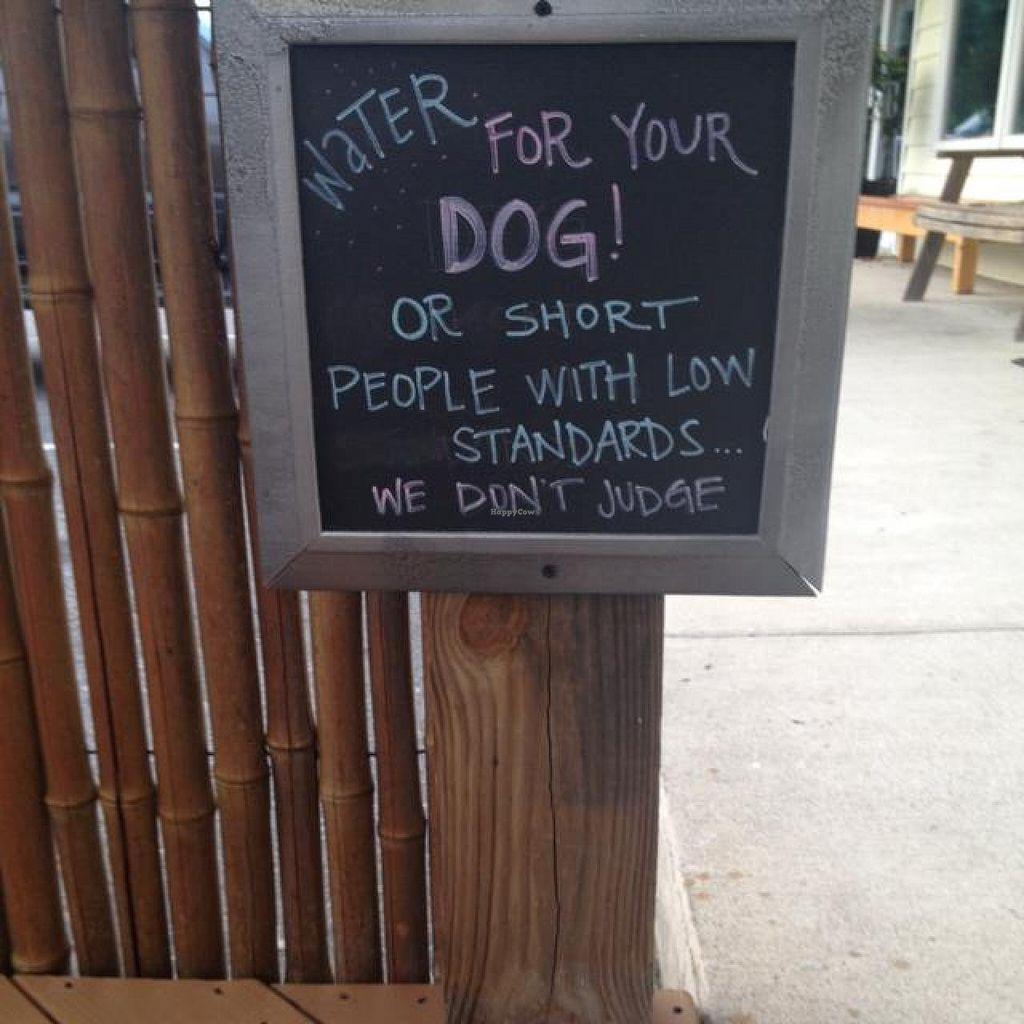 WaTER FOR YOUR
DOG!
OR SHORT
PEOPLE WITH LOW
STANDARDS...
WE DON'T JUDGE
HappyCow